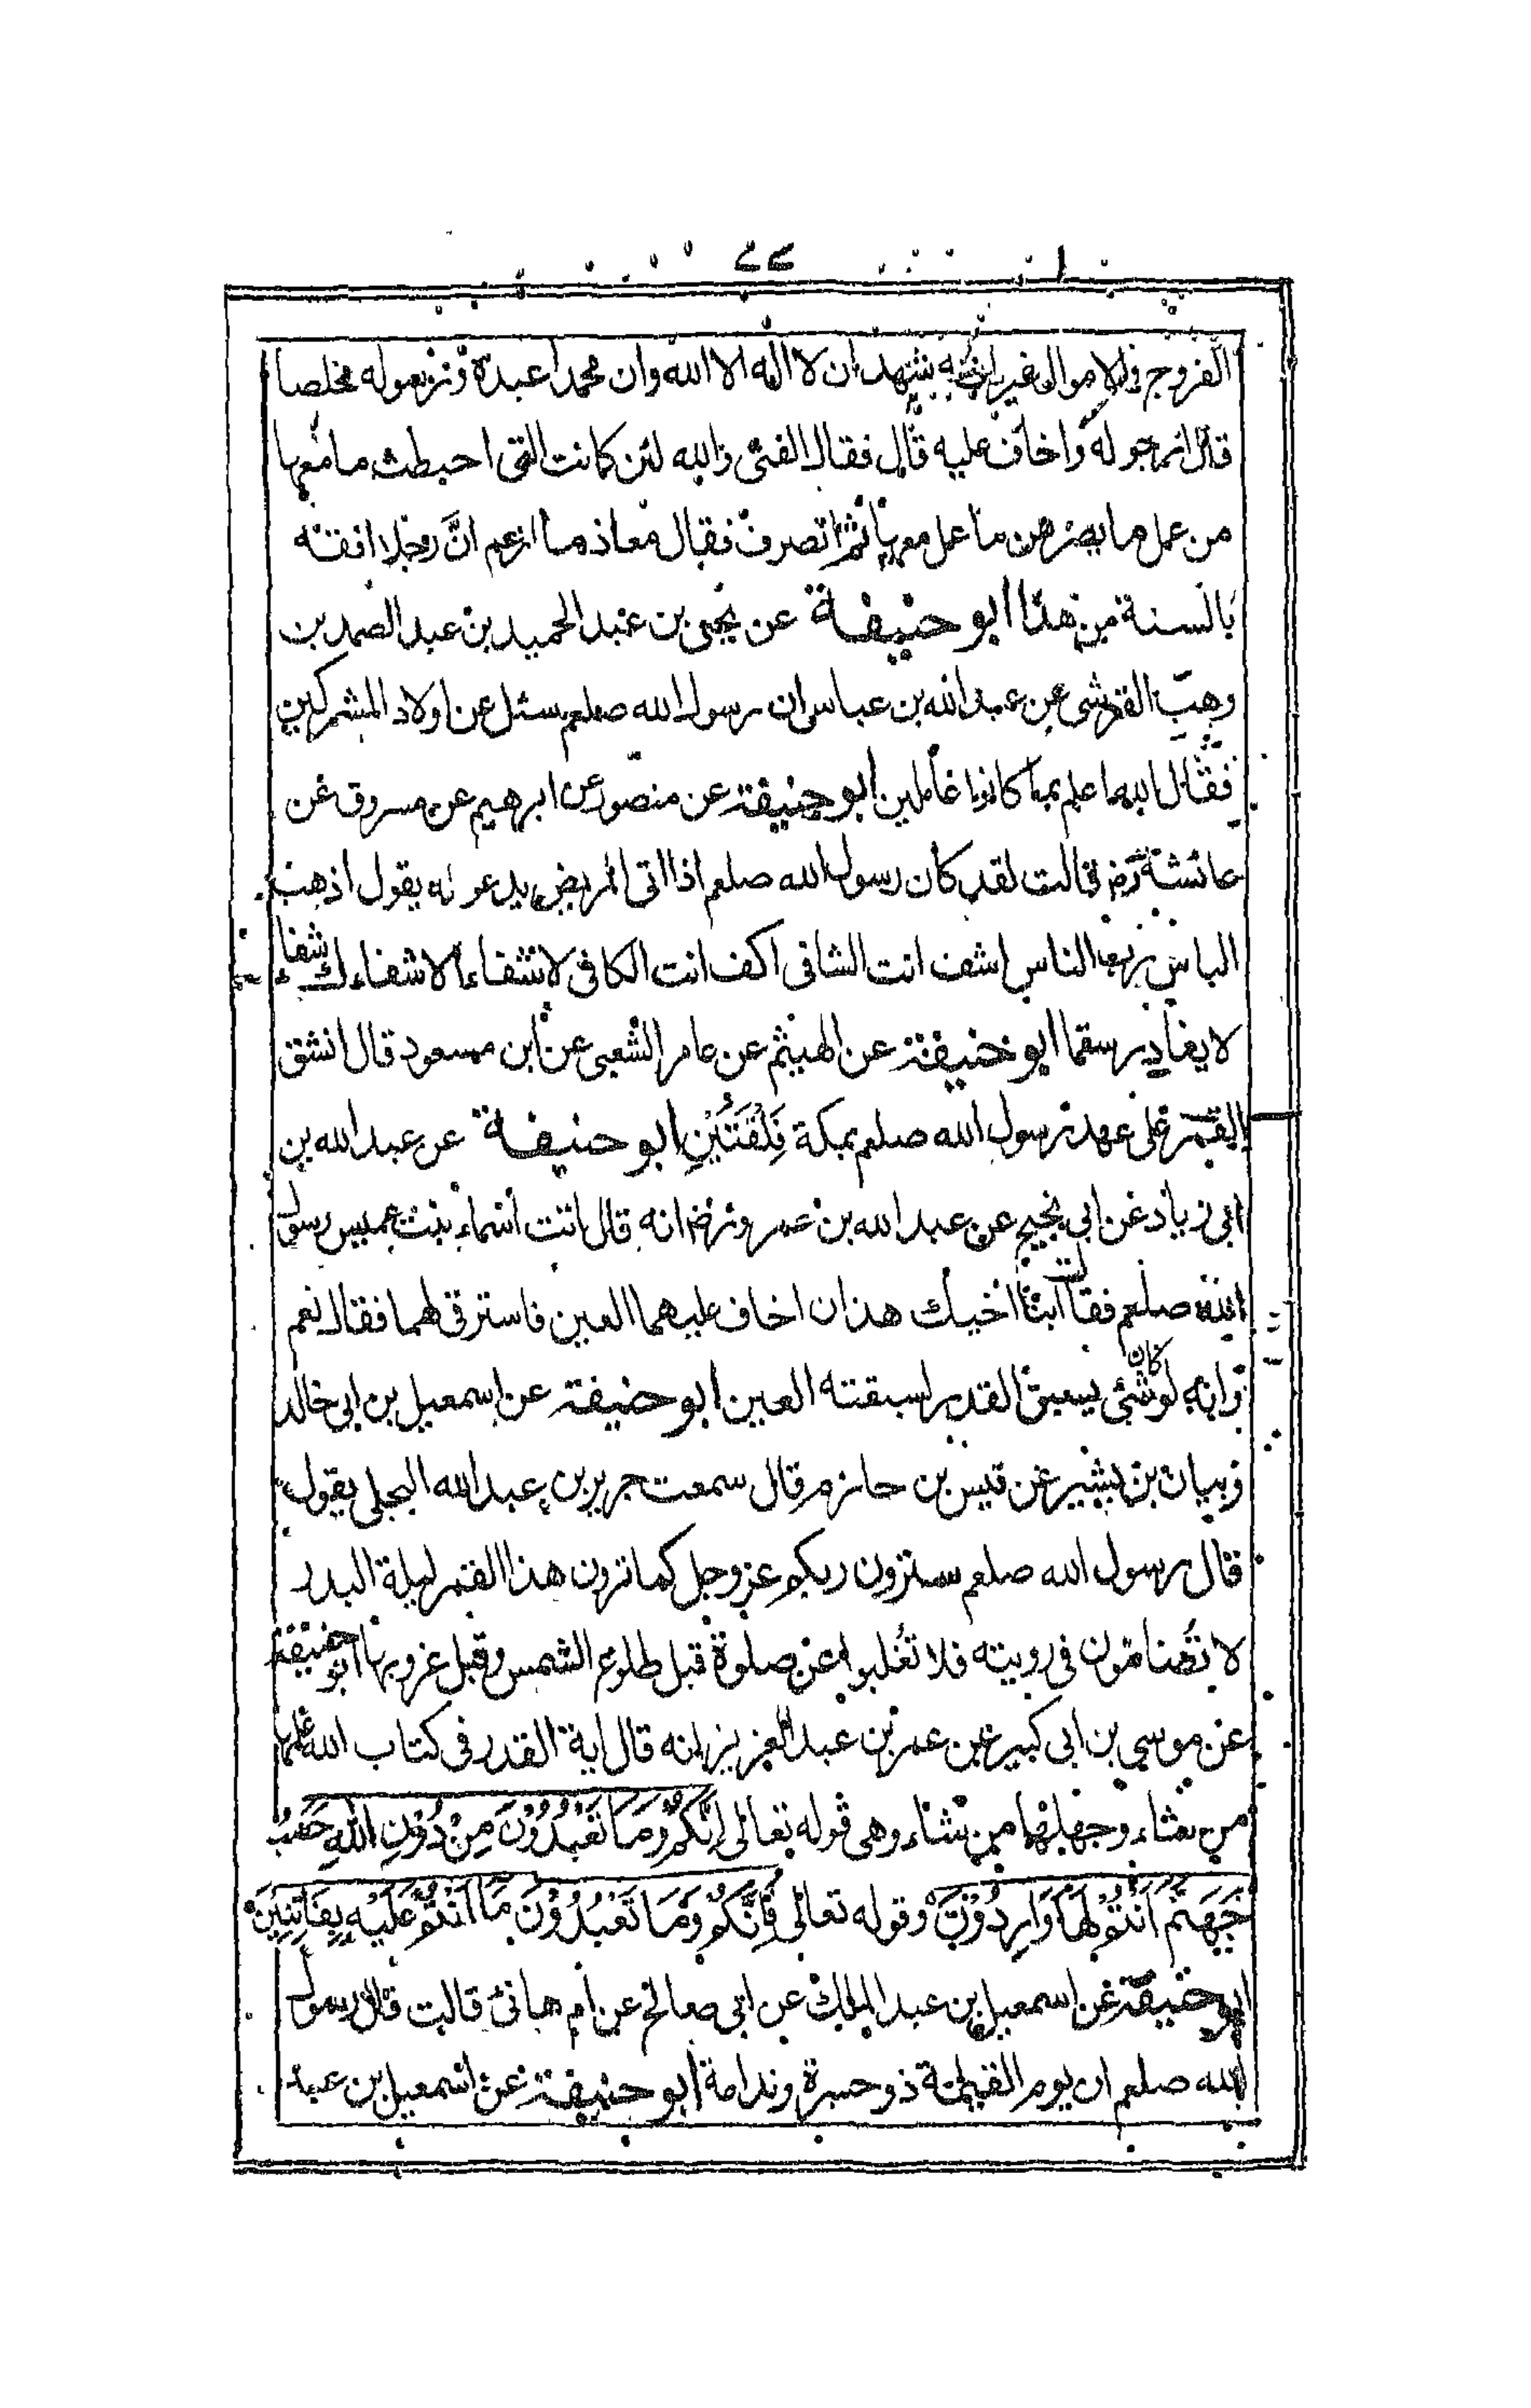 الفروج والاموال غير انه يشهد ان لا اله الا الله وان محمدا عبده ورسوله مخلصا
قال ارجو له واخاف عليه قال فقال الفتى والله لئن كانت التى احبطت ما معها
من عمل ما يضره من ما عمل معها ثم انصرف فقال معاذ ما ازعم انَّ رجلا افقه
بالسنة من هذا ابو حنيفة عن يحيى بن عبد الحميد بن عبد الصمد بن
وهب القرشى عن عبد الله بن عباس ان رسول الله صلعم سئل عن اولاد المشركين
فقال الله اعلم بما كانوا عاملين ابو حنيفة عن منصور عن ابرهيم عن مسروق عن
عائشة رض قالت لقد كان رسول الله صلعم اذا اتى المريض يدعو له يقول اذهب
الباس رب الناس اشف انت الشافى اكف انت الكافى لا شفاء الا شفاءك شفاء
لا يغادر سقما ابو حنيفة عن الهيثم عن عامر الشعبى عن ابن مسعود قال انشق
القمر على عهد رسول الله صلعم بمكة فِلْقَتَيْنِ ابو حنيفة عن عبد الله بن
ابى زياد عن ابى نجيح عن عبد الله بن عمرو رض انه قال اتت اسماء بنت عميس رسول
الله صلعم فقالت ابنا اخيك هذان اخاف عليهما العين فاسترقى لهما فقال نعم
وانه لو كان شئى يسبق القدر لسبقته العين ابو حنيفة عن اسمعيل بن ابى خالد
وبيان بن بشير عن قيس بن حازم قال سمعت جرير بن عبد الله البجلى يقول
قال رسول الله صلعم سترون ربكم عز وجل كما ترون هذا القمر ليلة البدر
لا تضامون فى رويته فلا تغلبوا عن صلوة قبل طلوع الشمس وقبل غروبها ابو حنيفة
عن موسى بن ابى كبير عن عمر بن عبد العزيز انه قال اية القدر فى كتاب الله علمها
من شاء وجهلها من شاء وهى قوله تعالى اِنَّكُمْ وَمَا تَعْبُدُوْنَ مِنْ دُوْنِ اللّٰهِ حَصَبُ
جَهَنَّمَ اَنْتُمْ لَهَا وَارِدُوْنَ وقوله تعالى فَاِنَّكُمْ وَمَا تَعْبُدُوْنَ مَا اَنْتُمْ عَلَيْهِ بِفَاتِنِيْنَ
ابو حنيفة عن اسمعيل بن عبد الملك عن ابى صالح عن ام هانئ قالت قال رسول
الله صلعم ان يوم القيمة ذو حسرة وندامة ابو حنيفة عن اسمعيل بن عبد